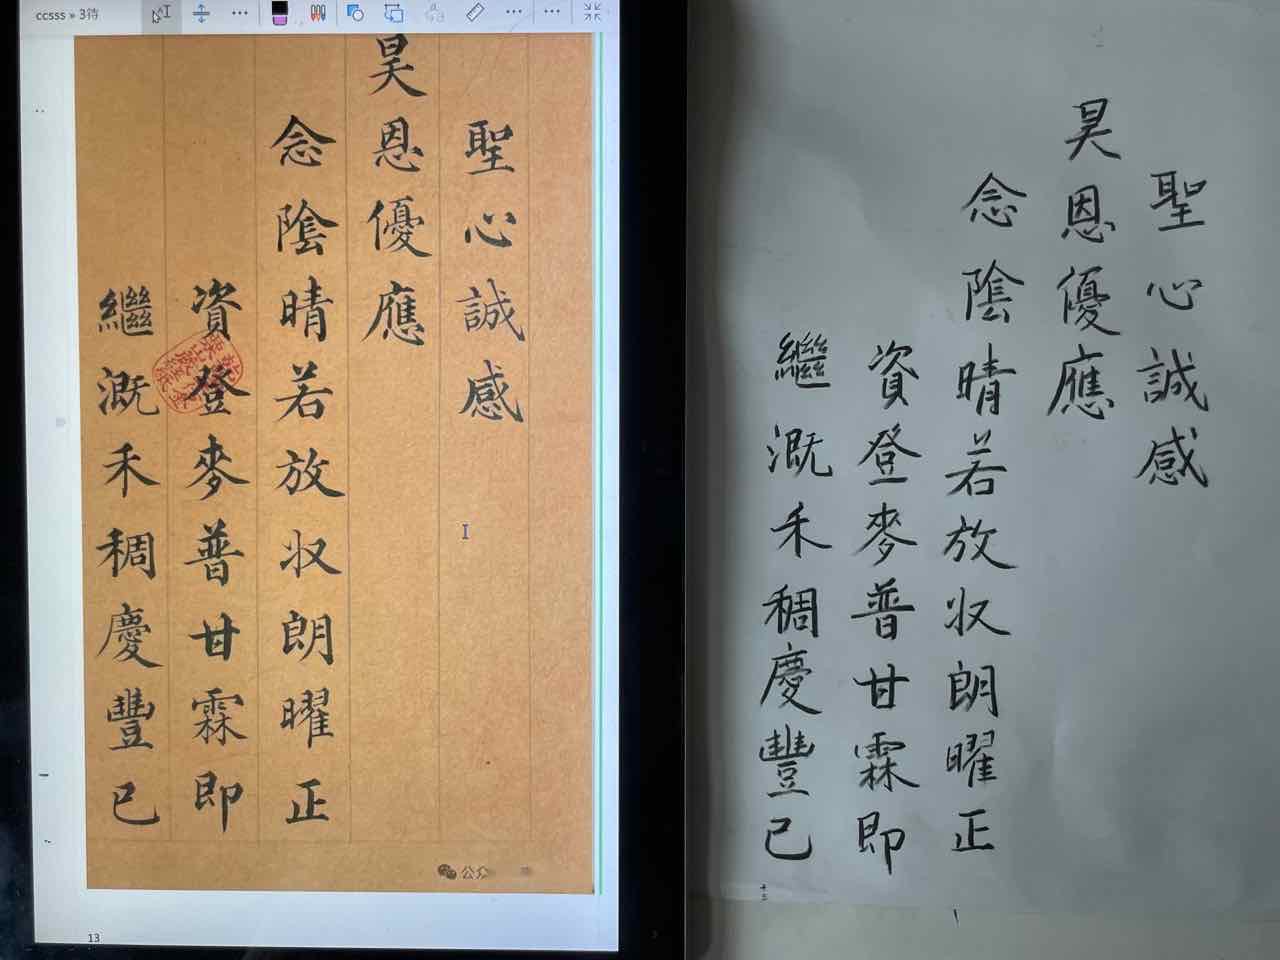 ccsss » 3待
聖心誠感
昊恩優應
念陰晴若放収朗曜正
資登麥普甘霖即
繼溉禾稠慶豐已
公众
13
聖心誠感
昊恩優應
念陰晴若放収朗曜正
資登麥普甘霖即
繼溉禾稠慶豐已